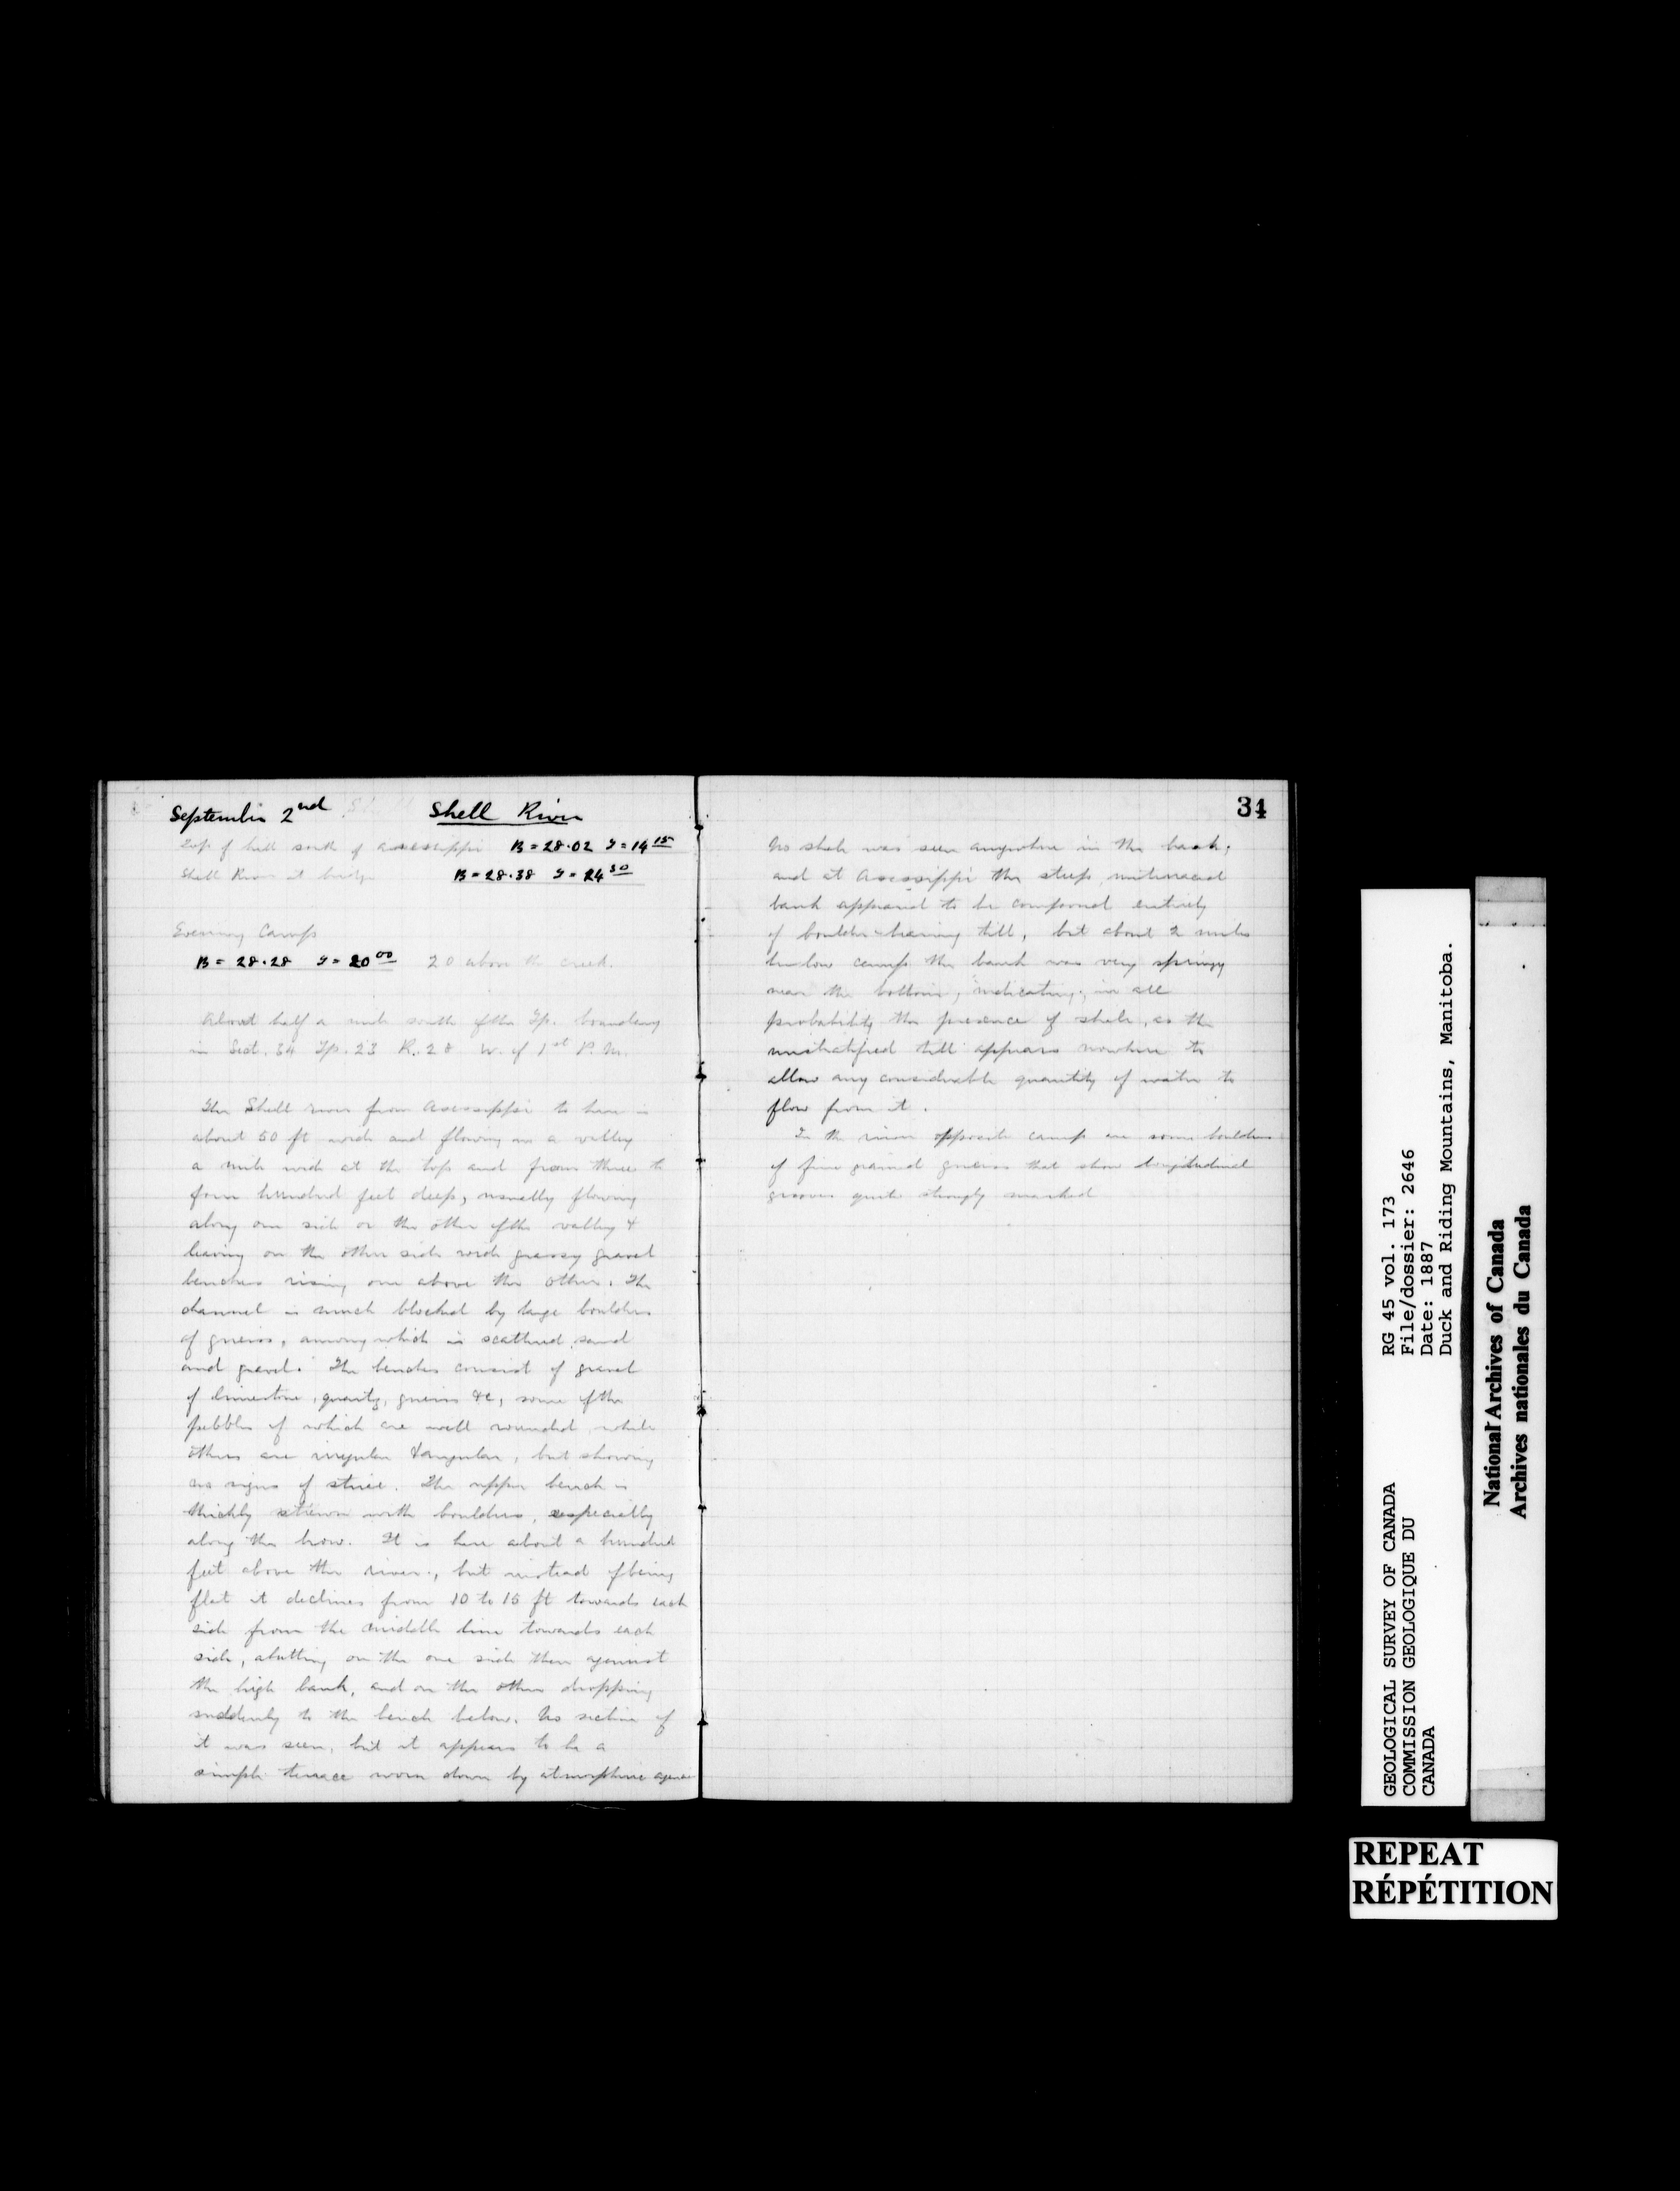 September 2nd Shell River
Top of hill south of Asessippi B = 28.02 T = 14 15
Shell River at bridge B = 28.38 T = 24 30
Evening Camp
B = 28.28 T = 20 00 20 above the creek.
About half a mile south of the Tp. boundary
in Sect. 34 Tp. 23 R. 28 W. of 1st P. M.
The Shell river from Asessippi to here is
about 50 ft wide and flowing in a valley
a mile wide at the top and from three to
four hundred feet deep, usually flowing
along one side or the other of the valley &
leaving on the other side wide grassy gravel
benches rising one above the other. The
channel is much blocked by large boulders
of gneiss, among which is scattered sand
and gravel. The benches consist of gravel
of limestone, quartz, gneiss &c, some of the
pebbles of which are well rounded, while
others are irregular & angular, but showing
no signs of striæ. The upper bench is
thickly strewn with boulders, especially
along the brow. It is here about a hundred
feet above the river, but instead of being
flat it declines from 10 to 15 ft towards each
side from the middle line towards each
side, abutting on the one side then against
the high bank, and on the other dropping
suddenly to the bench below. No section of
it was seen, but it appears to be a
simple terrace worn down by atmospheric
34
No shale was seen anywhere in the bank,
and at Asessippi the steep
bank appeared to be composed entirely
of boulder-bearing till, but about 2 miles
below camp the bank was very springy
near the bottom, indicating, in all
probability the presence of shale, as the
unstratified till appears nowhere to
allow any considerable quantity of water to
flow from it.
In the river opposite camp are some boulders
of fine grained gneiss that show longitudinal
grooves quite strongly marked
GEOLOGICAL SURVEY OF CANADA
COMMISSION GEOLOGIQUE DU
CANADA
RG 45 vol. 173
File/dossier: 2646
Date: 1887
Duck and Riding Mountains, Manitoba.
National Archives of Canada
Archives nationales du Canada
REPEAT
RÉPÉTITION